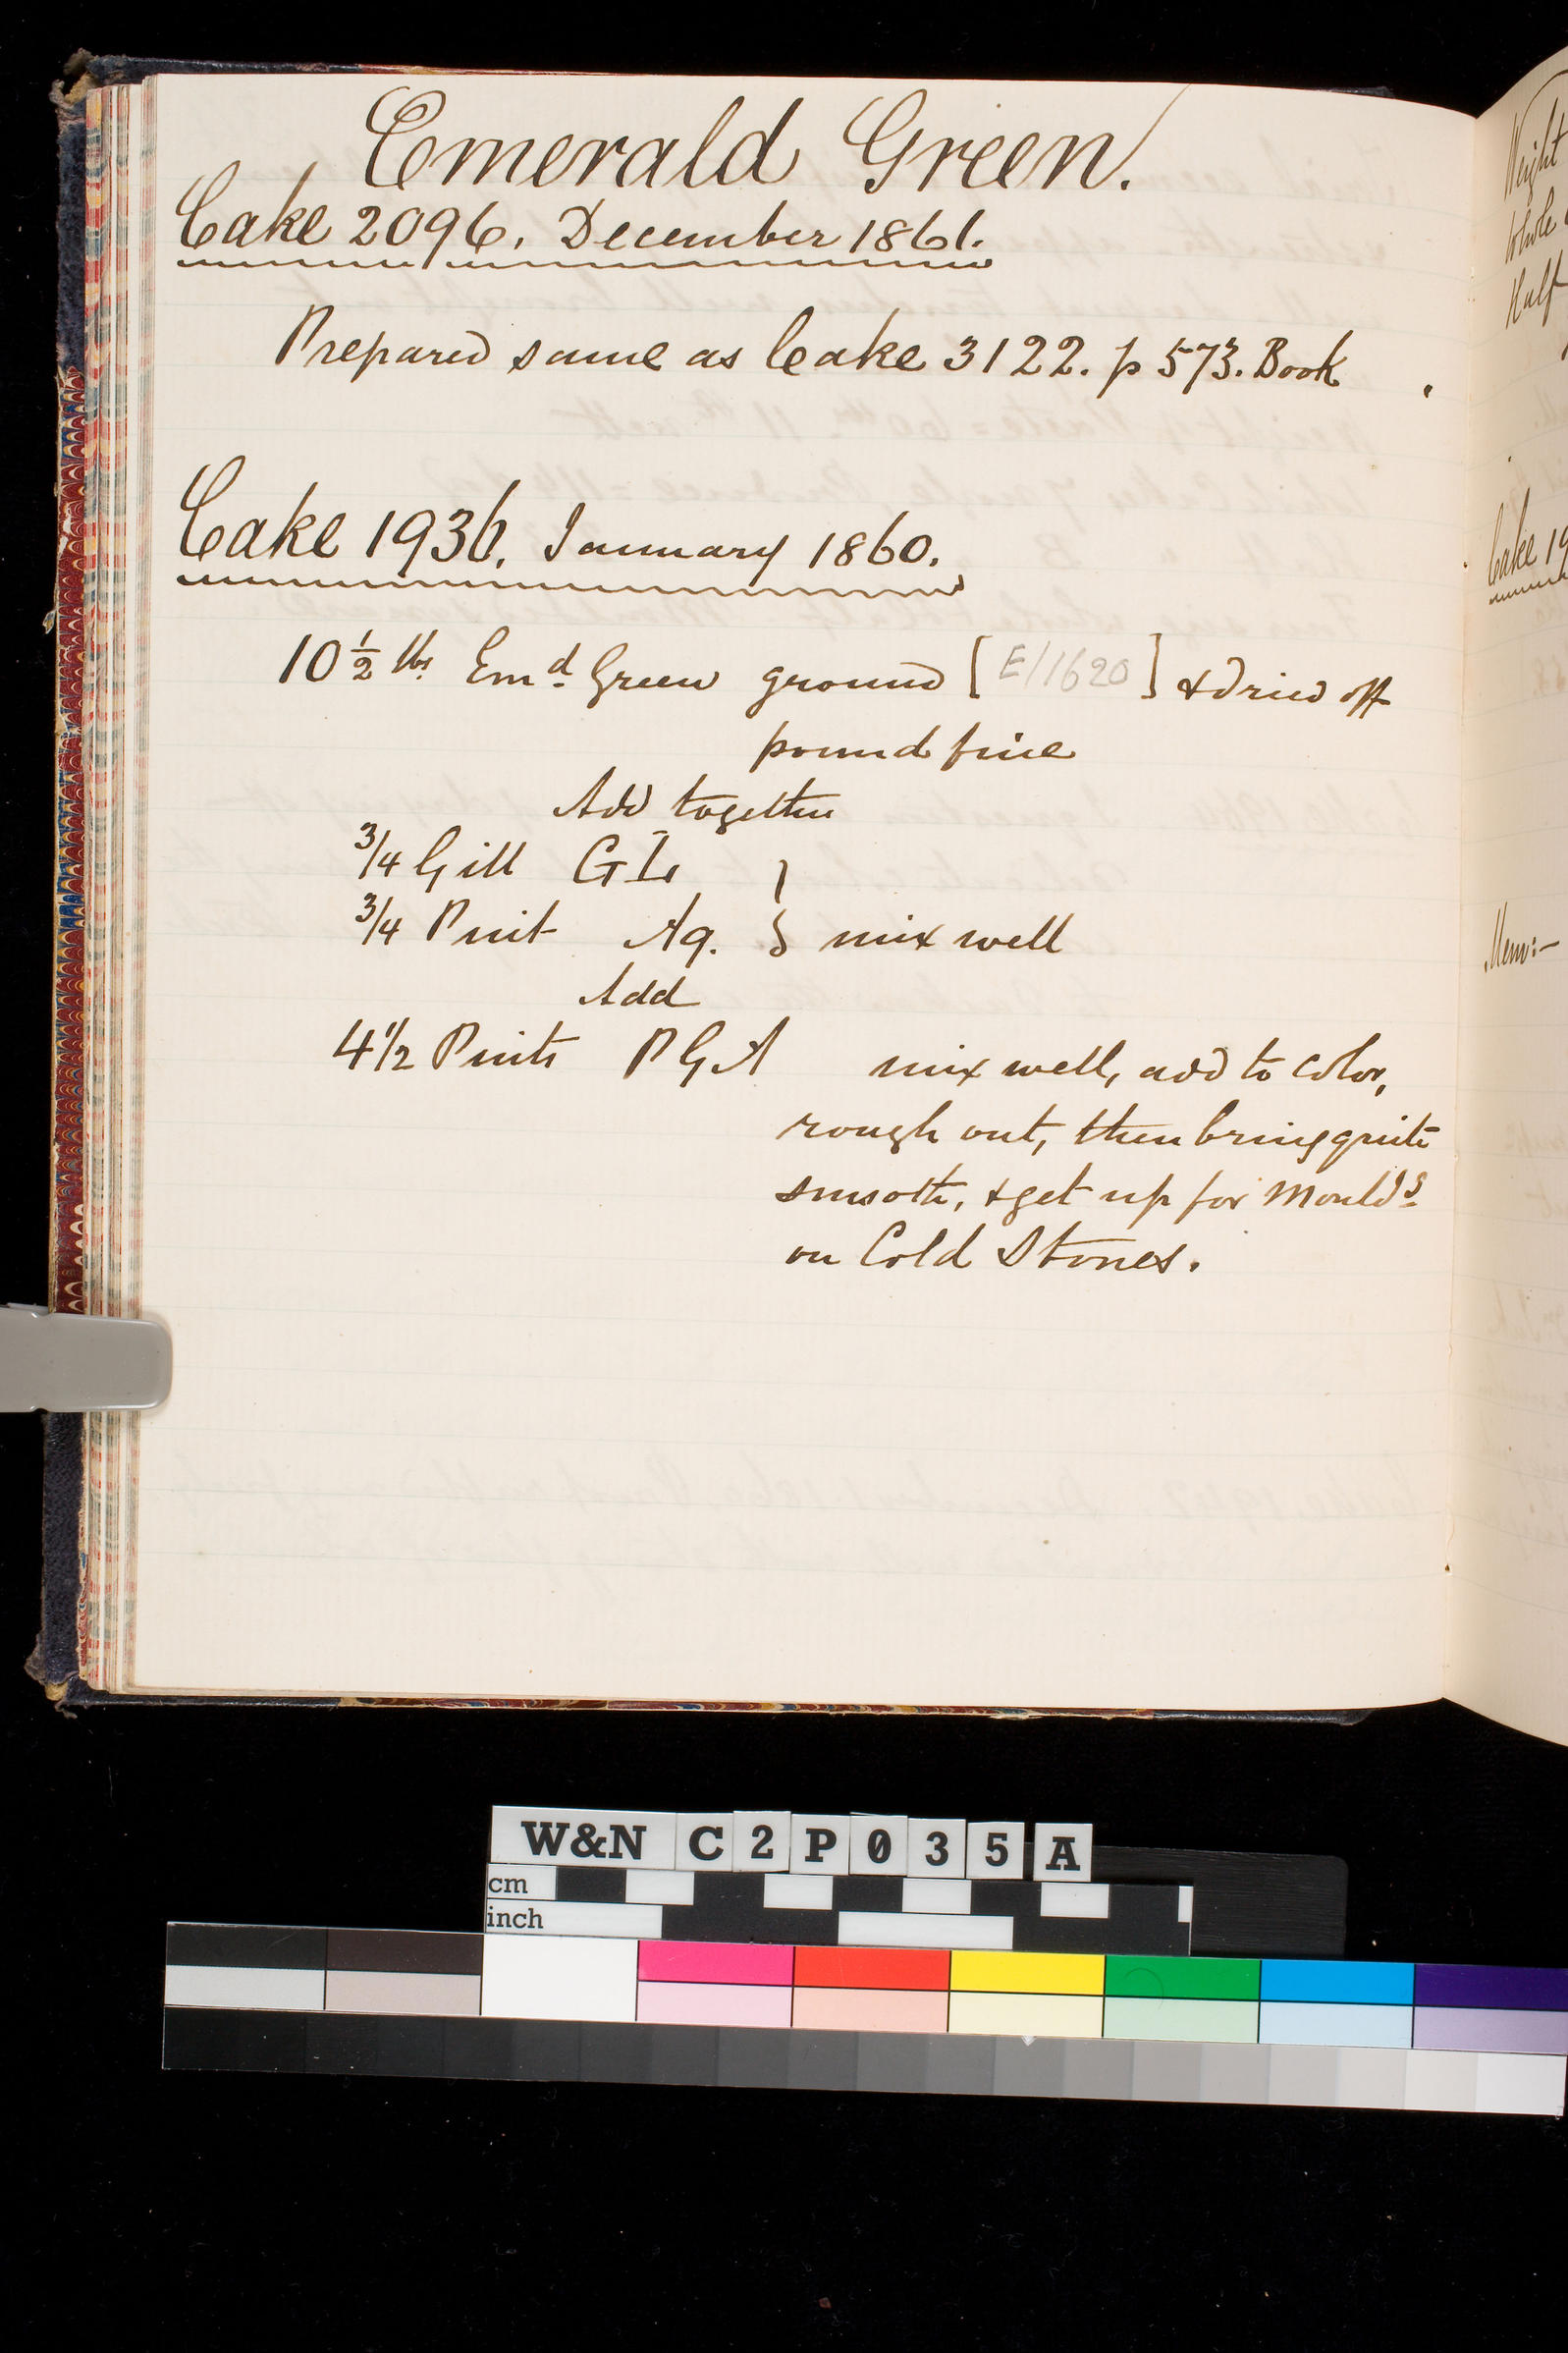 Emerald Green.
Cake 2096. December 1861.
Prepared same as Cake 3122. p 573. Book .
Cake 1936. January 1860.
10 1/2 lbs Emd Green ground [E/1620] & dried off
pound fine
Add together
3/4 Gill GL
3/4 Pint Aq. } mix well
Add
4 1/2 Pints PGA mix well, add to color,
rough out, then bring quite
smooth, & get up for Moulds
on Cold Stones.
Weight
Whole
Half
Cake 19
Mem:-
W&N C2P035A
cm
inch